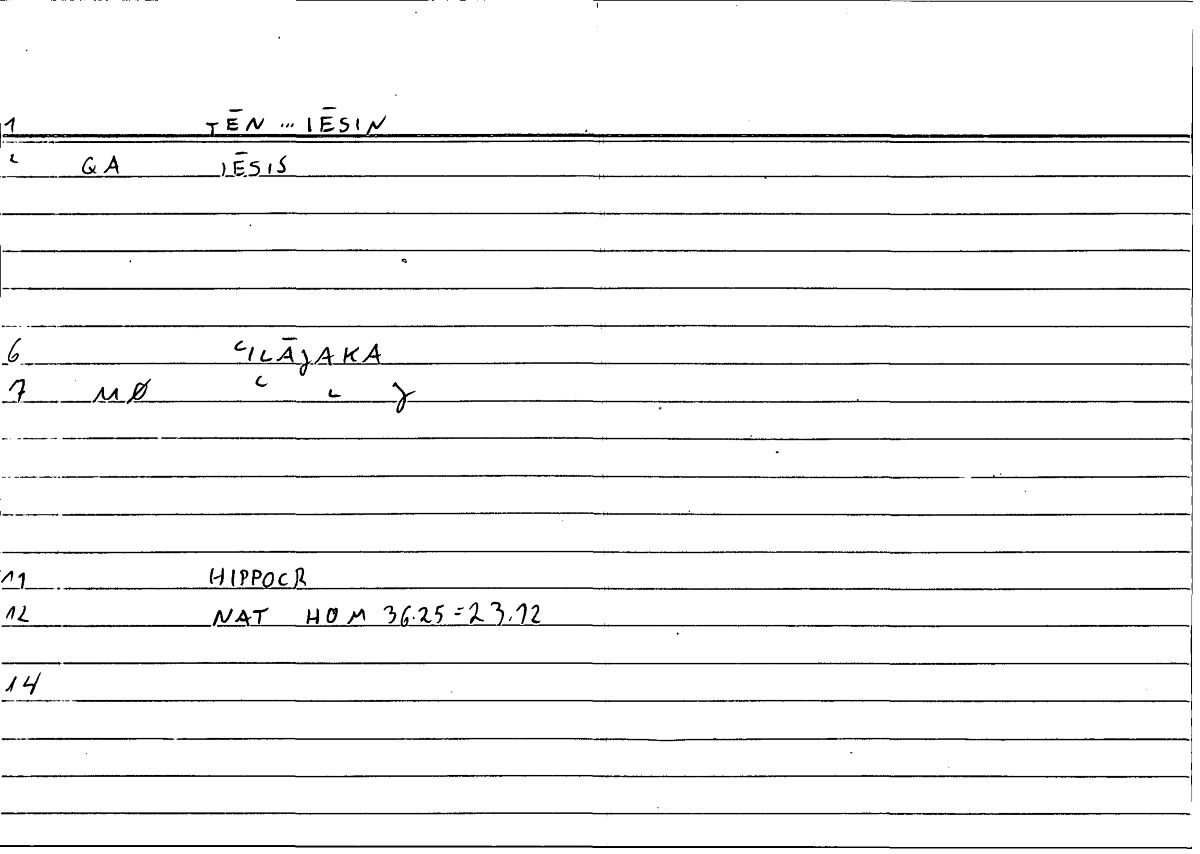 1 TĒN ... IĒSIN
2 GA IĒSIS
6 ʿILĀǧAKA
7 MØ ʿ L ǧ
11 HIPPOCR
12 NAT HOM 36.25=23.12
14